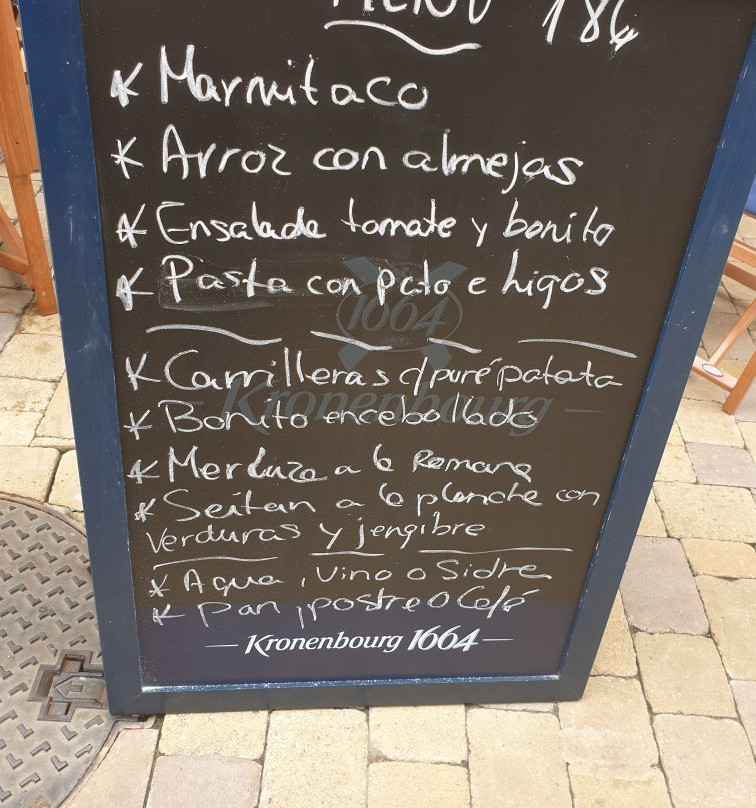 MENÚ 18€
* Marmitaco
* Arroz con almejas
* Ensalada tomate y bonito
* Pasta con pato e higos
1664
* Carrilleras c/puré patata
Kronenbourg
* Bonito encebollado
* Merluza a la Romana
* Seitan a la plancha con
verduras y jengibre
* Agua, vino o Sidra
* pan, postre o Café
Kronenbourg 1664